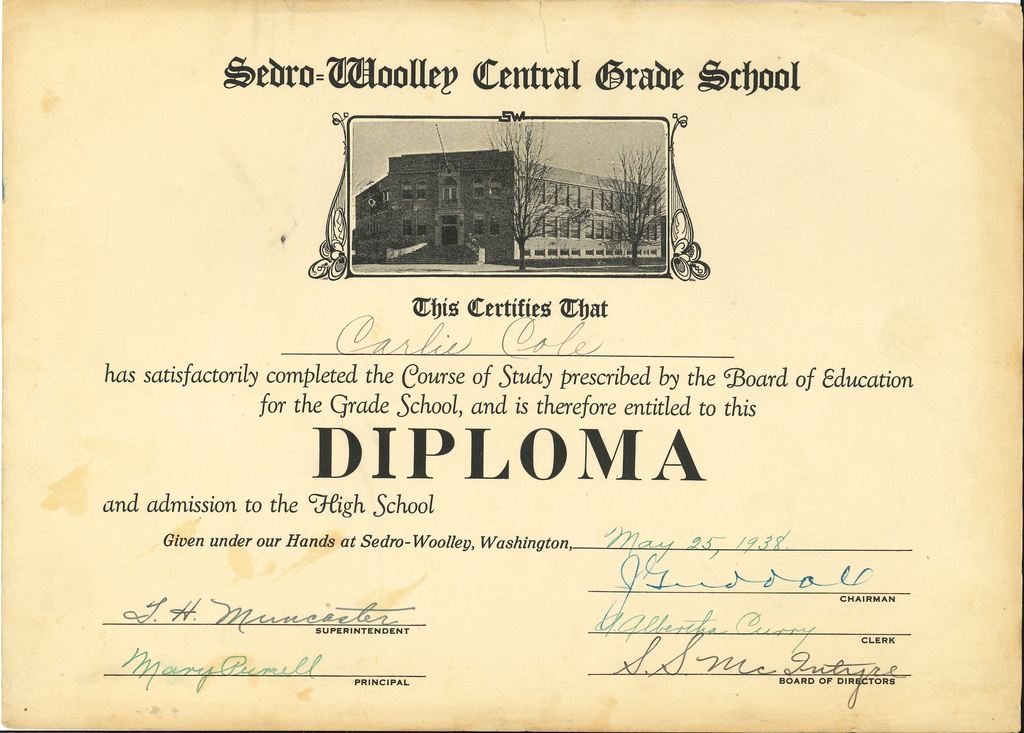 Sedro-Woolley Central Grade School
SW
This Certifies That
Carlie Cole
has satisfactorily completed the Course of Study prescribed by the Board of Education
for the Grade School, and is therefore entitled to this
DIPLOMA
and admission to the High School
Given under our Hands at Sedro-Woolley, Washington, May 25, 1938.
CHAIRMAN
Muncaster
SUPERINTENDENT
Albertha Curry
CLERK
Mary Purcell
PRINCIPAL
S. S. McIntyre
BOARD OF DIRECTORS